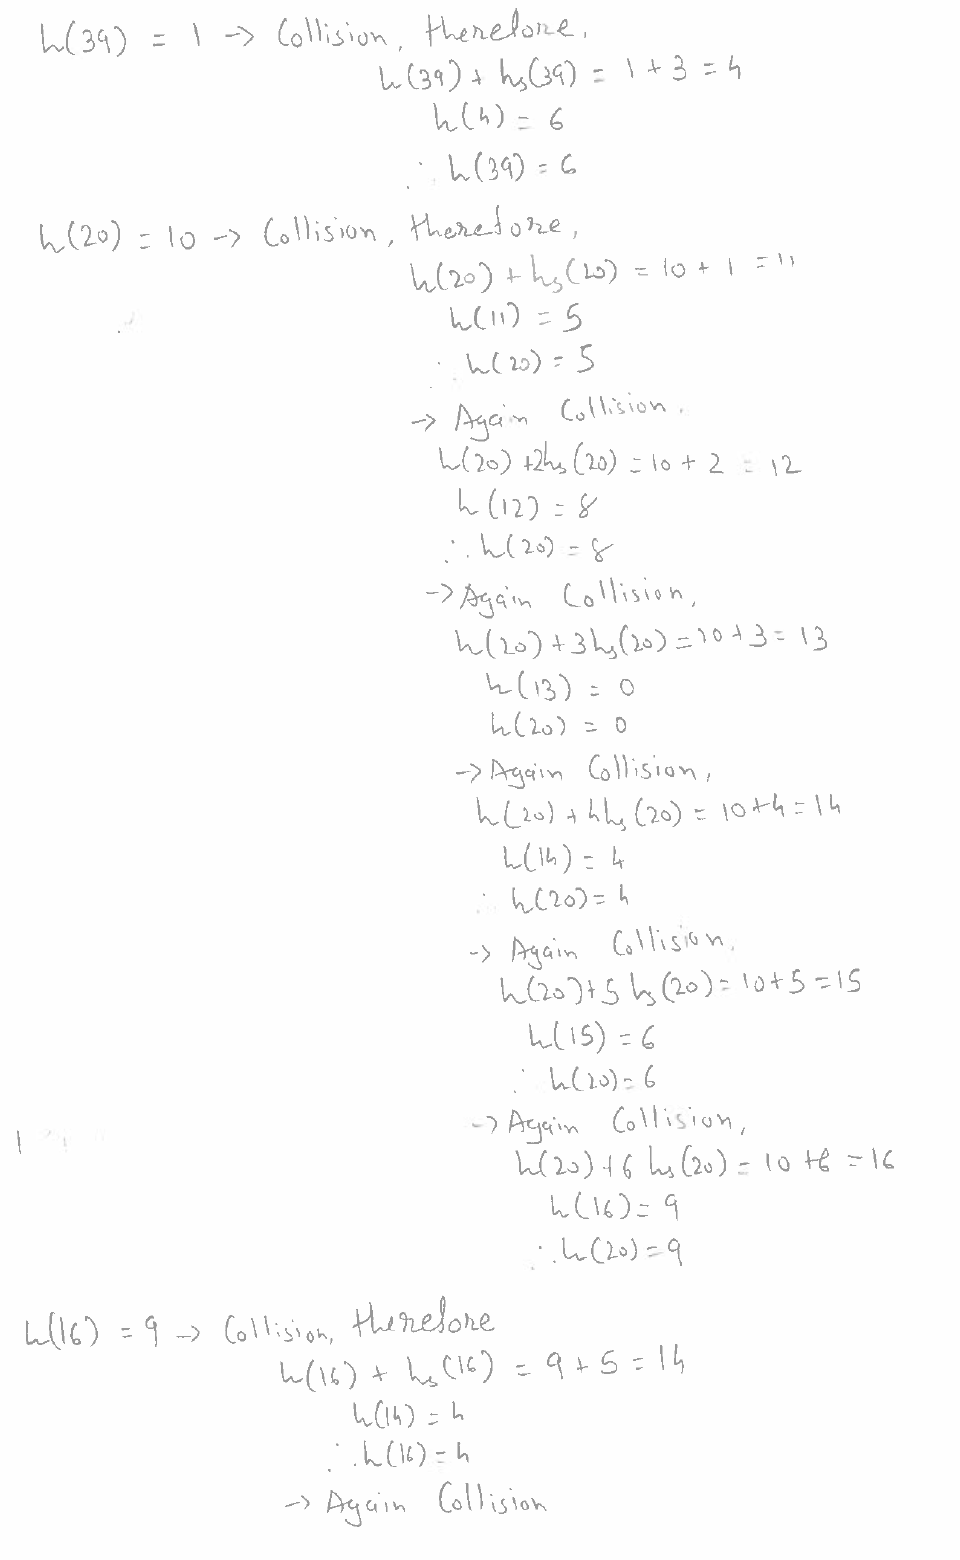 h(39) = 1 -> Collision, therefore,
h(39) + hs(39) = 1 + 3 = 4
h(4) = 6
∴ h(39) = 6
h(20) = 10 -> Collision, therefore,
h(20) + hs(20) = 10 + 1 = 11
h(11) = 5
∴ h(20) = 5
-> Again Collision.
h(20) + 2hs(20) = 10 + 2 = 12
h(12) = 8
∴ h(20) = 8
-> Again Collision,
h(20) + 3hs(20) = 10 + 3 = 13
h(13) = 0
h(20) = 0
-> Again Collision,
h(20) + 4hs(20) = 10 + 4 = 14
h(14) = 4
∴ h(20) = 4
-> Again Collision,
h(20) + 5 hs(20) = 10 + 5 = 15
h(15) = 6
∴ h(20) = 6
-> Again Collision,
h(20) + 6 hs(20) = 10 + 6 = 16
h(16) = 9
∴ h(20) = 9
h(16) = 9 -> Collision, therefore
h(16) + hs(16) = 9 + 5 = 14
h(14) = 4
∴ h(16) = 4
-> Again Collision